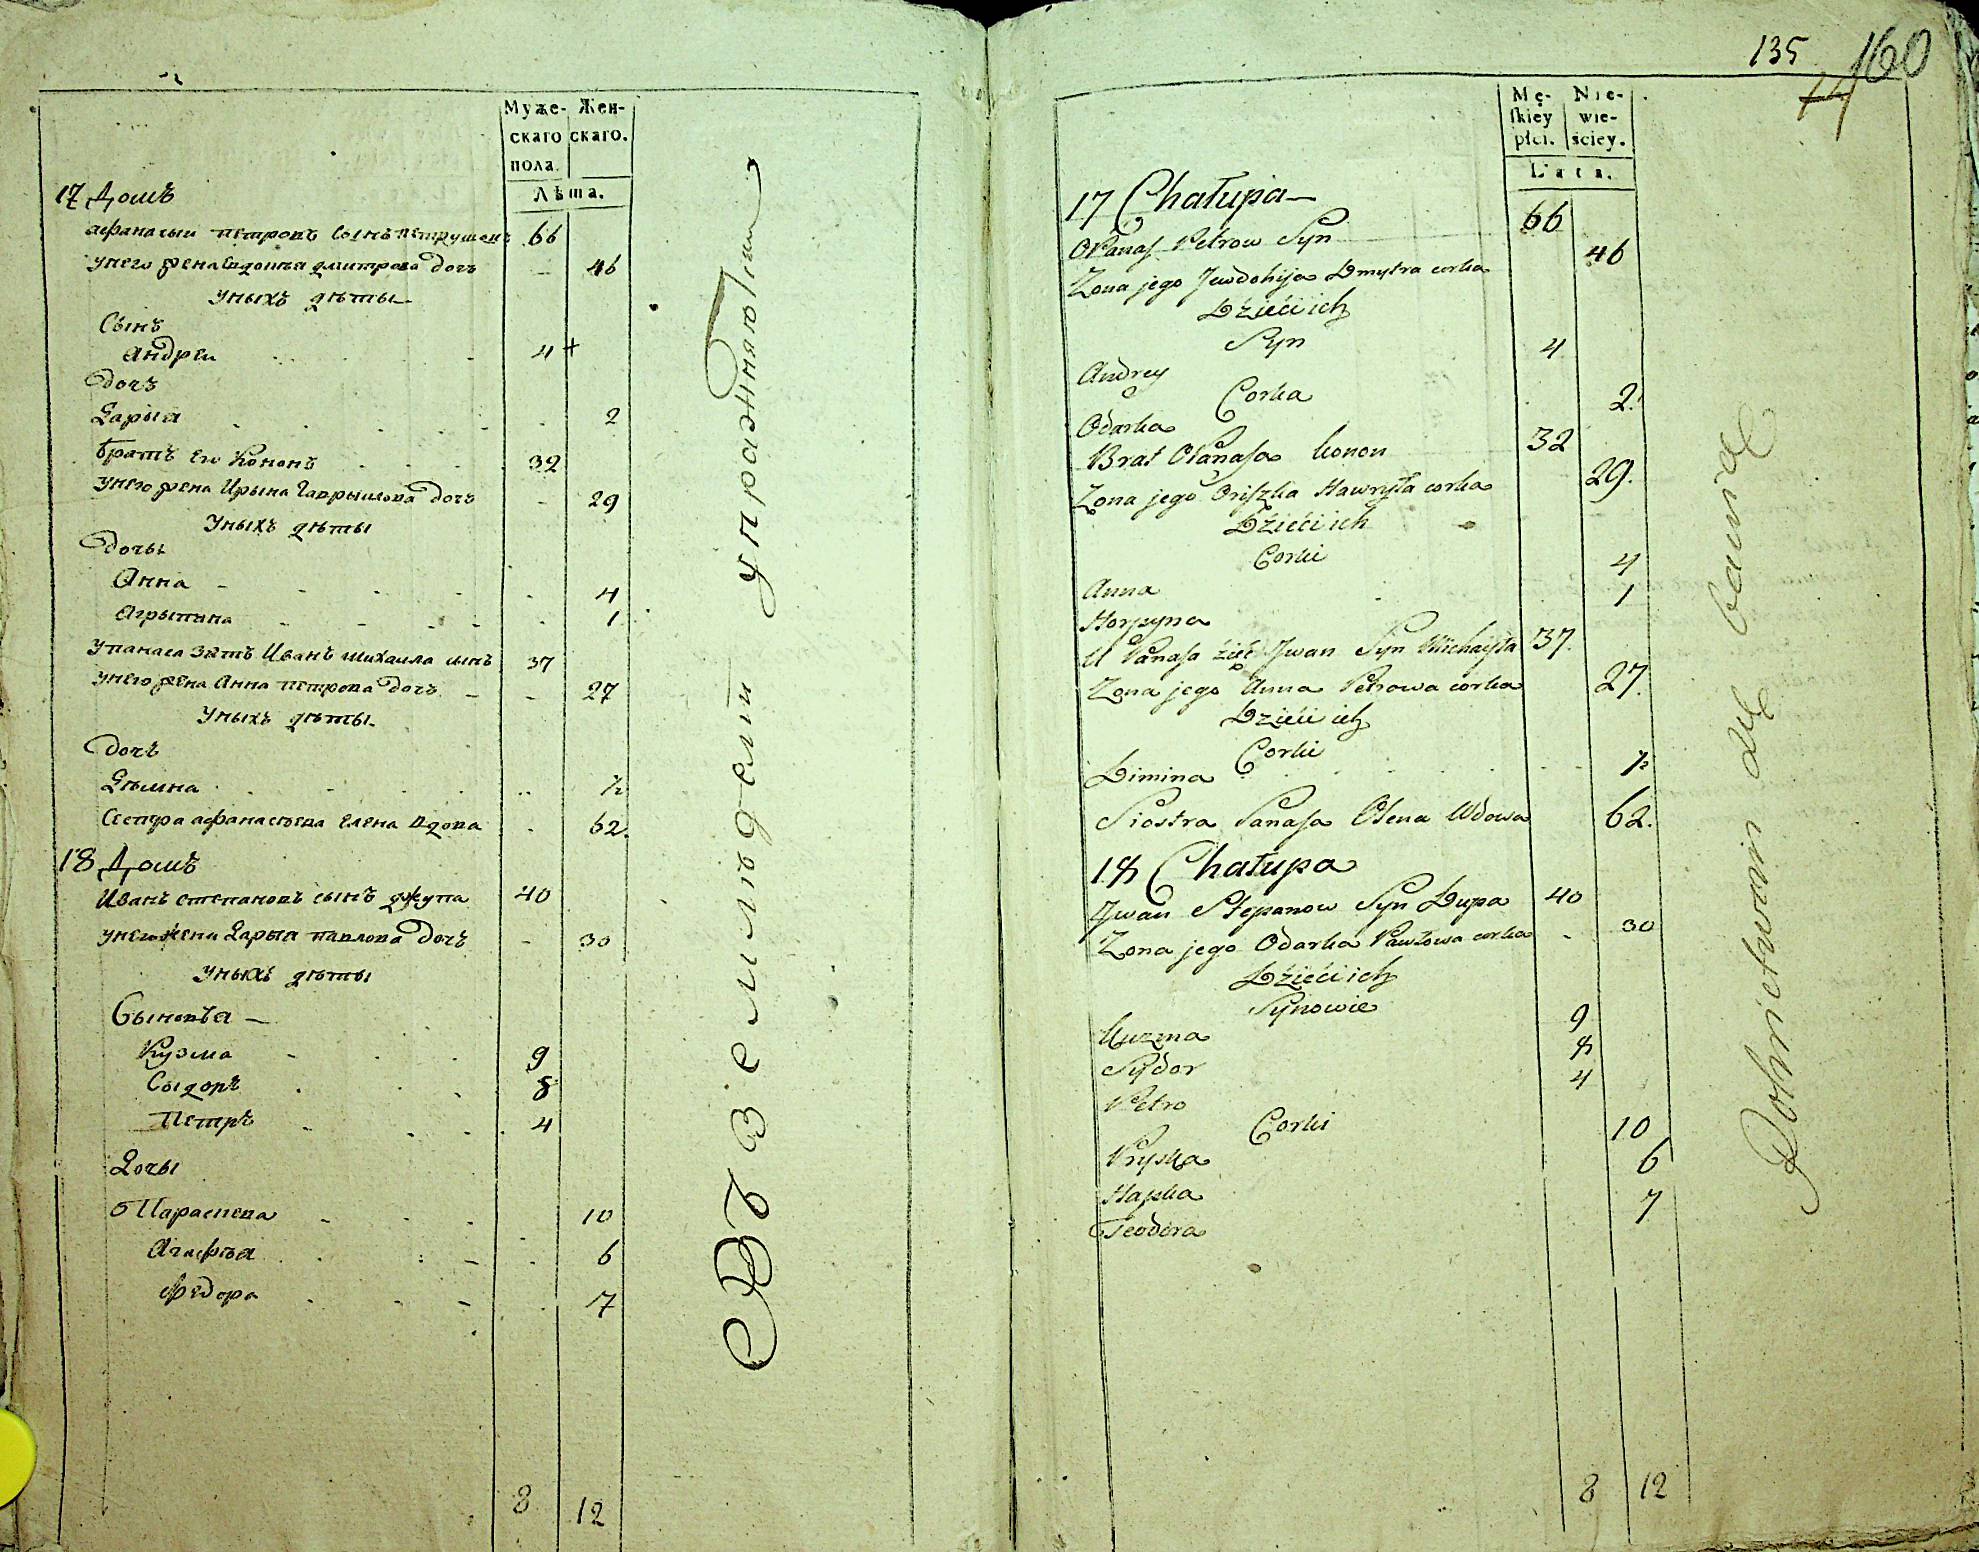 Муже-
скаго
пола.
Жен-
скаго.
Лѣта.
17 Домъ
Афанасый петровъ сынъ петрушенъ 66
Унего жена Евдокия дмитрова дочъ - 46
Уныхъ дѣты
Сынъ
Андрей 4 +
Дочъ
Дарыя 2
братъ его Кононъ 32
Унего жена Ирына Гаврылова дочъ - 29
Уныхъ дѣты
Дочы
Анна 4
Агрыпина 1
Упанаса зять Иванъ михаила сынъ 37
Унего жена Анна петрова дочъ - 27
Уныхъ дѣты
Дочъ
Дѣмина ½
Сестра афанасьева Елена вдова 62.
18 Домъ
Иванъ степановъ сынъ джупа 40
Унего жена Дарыя павлова дочъ - 30
Уныхъ дѣты
Сыновья
Кузма 9
Сыдоръ 8
Петръ 4
Дочы
Парасцева 10
Агафья 6
Федора 7
8 12
Въ земледелii упражняютiи
135
160
14
Mę-
skiey
płci.
Nie-
wie-
ściey.
Lata.
17 Chałupa 66
Opanas Petrow Syn
Zona jego Jewdohija Dmytra corka 46
Dzieci ich
Syn 4
Andrey
Corka 2.
Odarka
Brat Opanasa Konon 32
Zona jego Oriszka Hawryła corka 29.
Dzieci ich
Corki
Anna 4
Horpyna 1
U Panasa zięć Jwan Syn Michayła 37.
Zona jego Anna Petrowa corka 27.
Dzieci ich
Corki
Dimina ½
Siostra Panasa Olena Wdowa 62.
18 Chałupa
Jwan Stepanow Syn Dupa 40
Zona jego Odarka Pawłowa corka - 30
Dzieci ich
Synowie
Kuzma 9
Sydor 8
Petro 4
Corki
Pryska 10
Hapka 6
Teodora 7
8 12
Rolnictwem się bawią